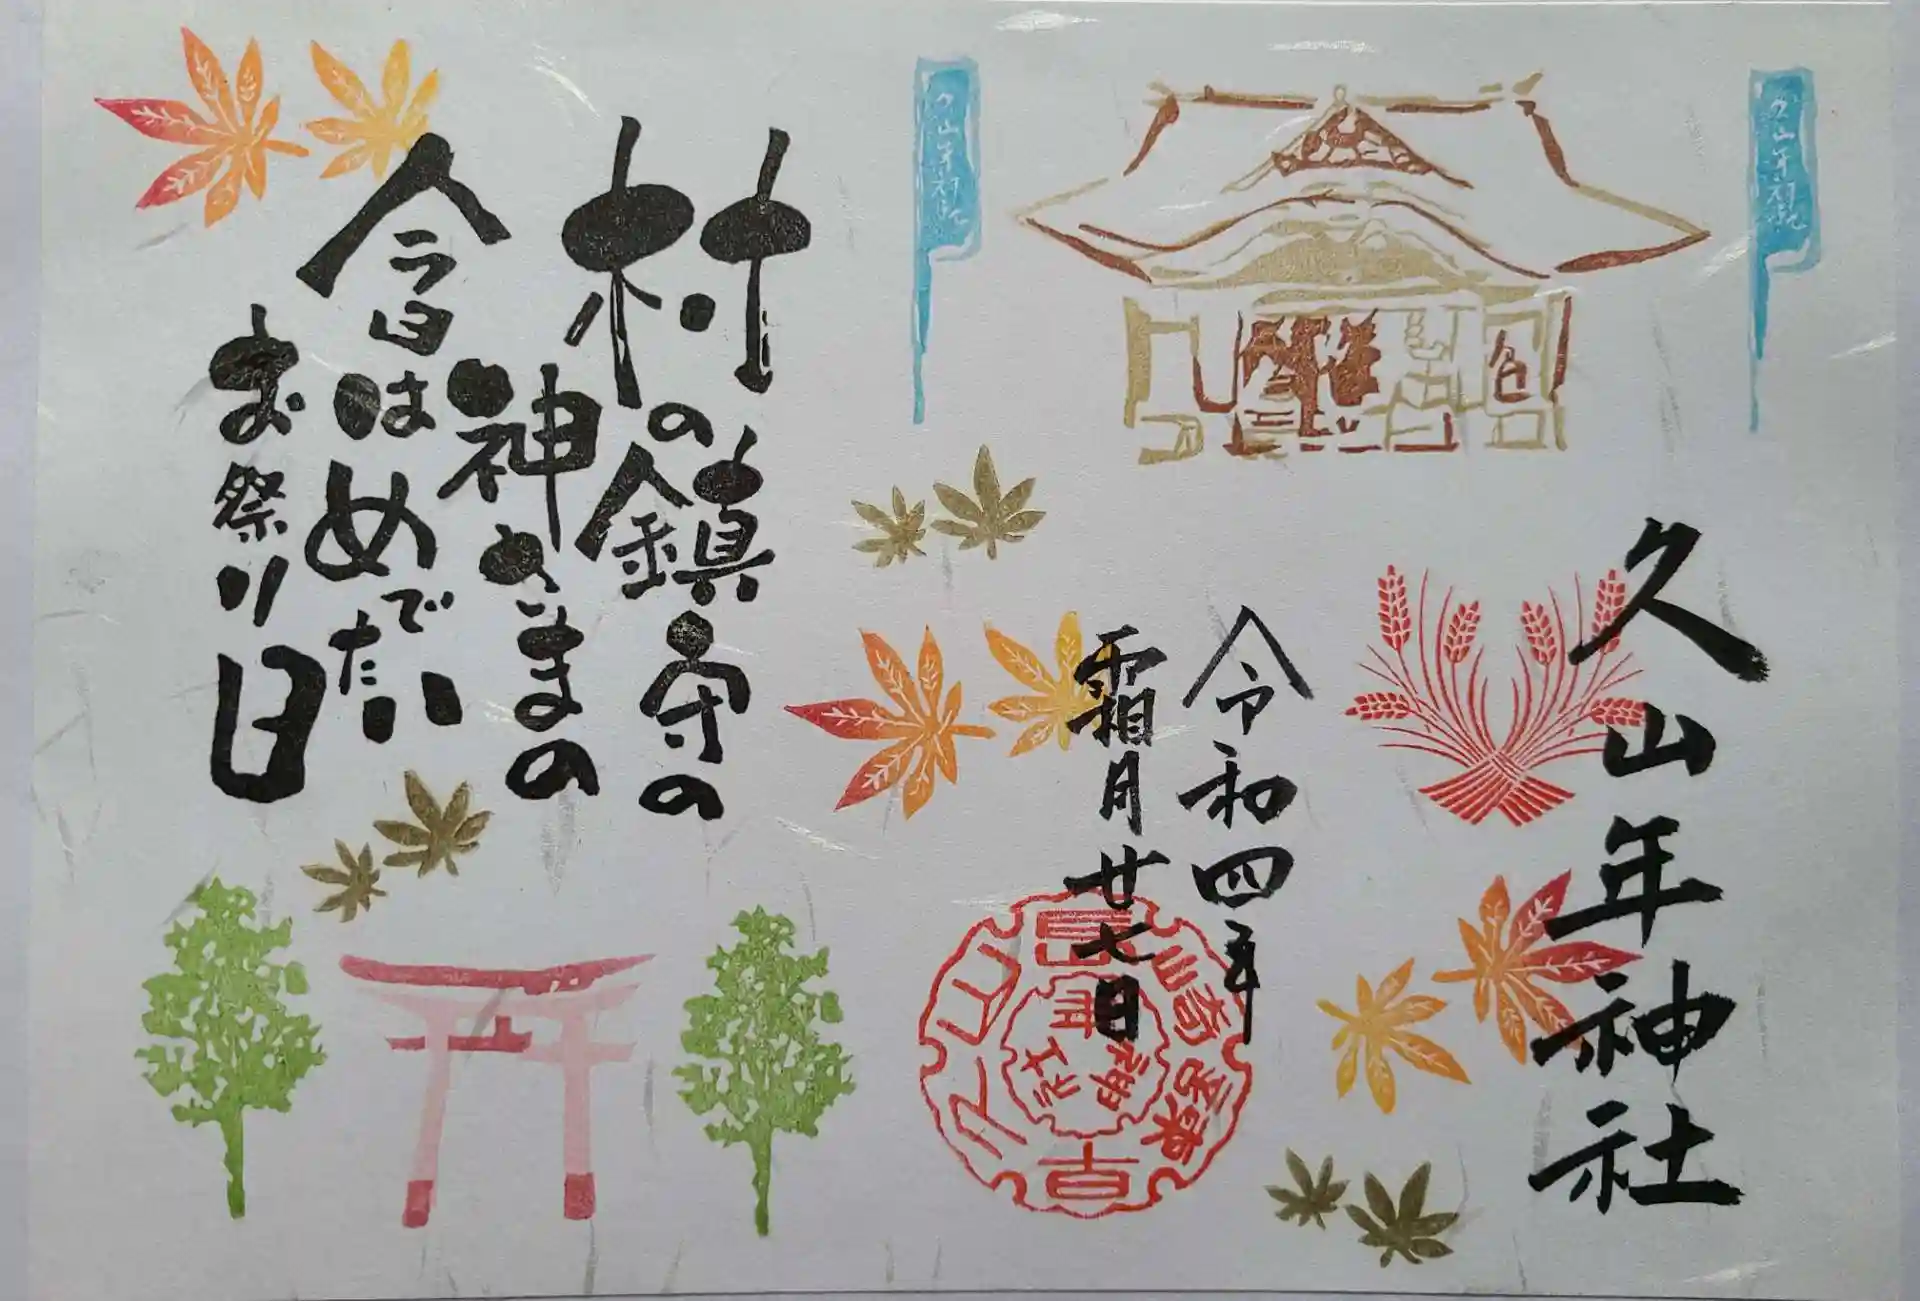 久山年神社
久山年神社
久山年神社
令和四年
霜月廿七日
村の鎮守の
神さまの
今日はめでたい
お祭り日